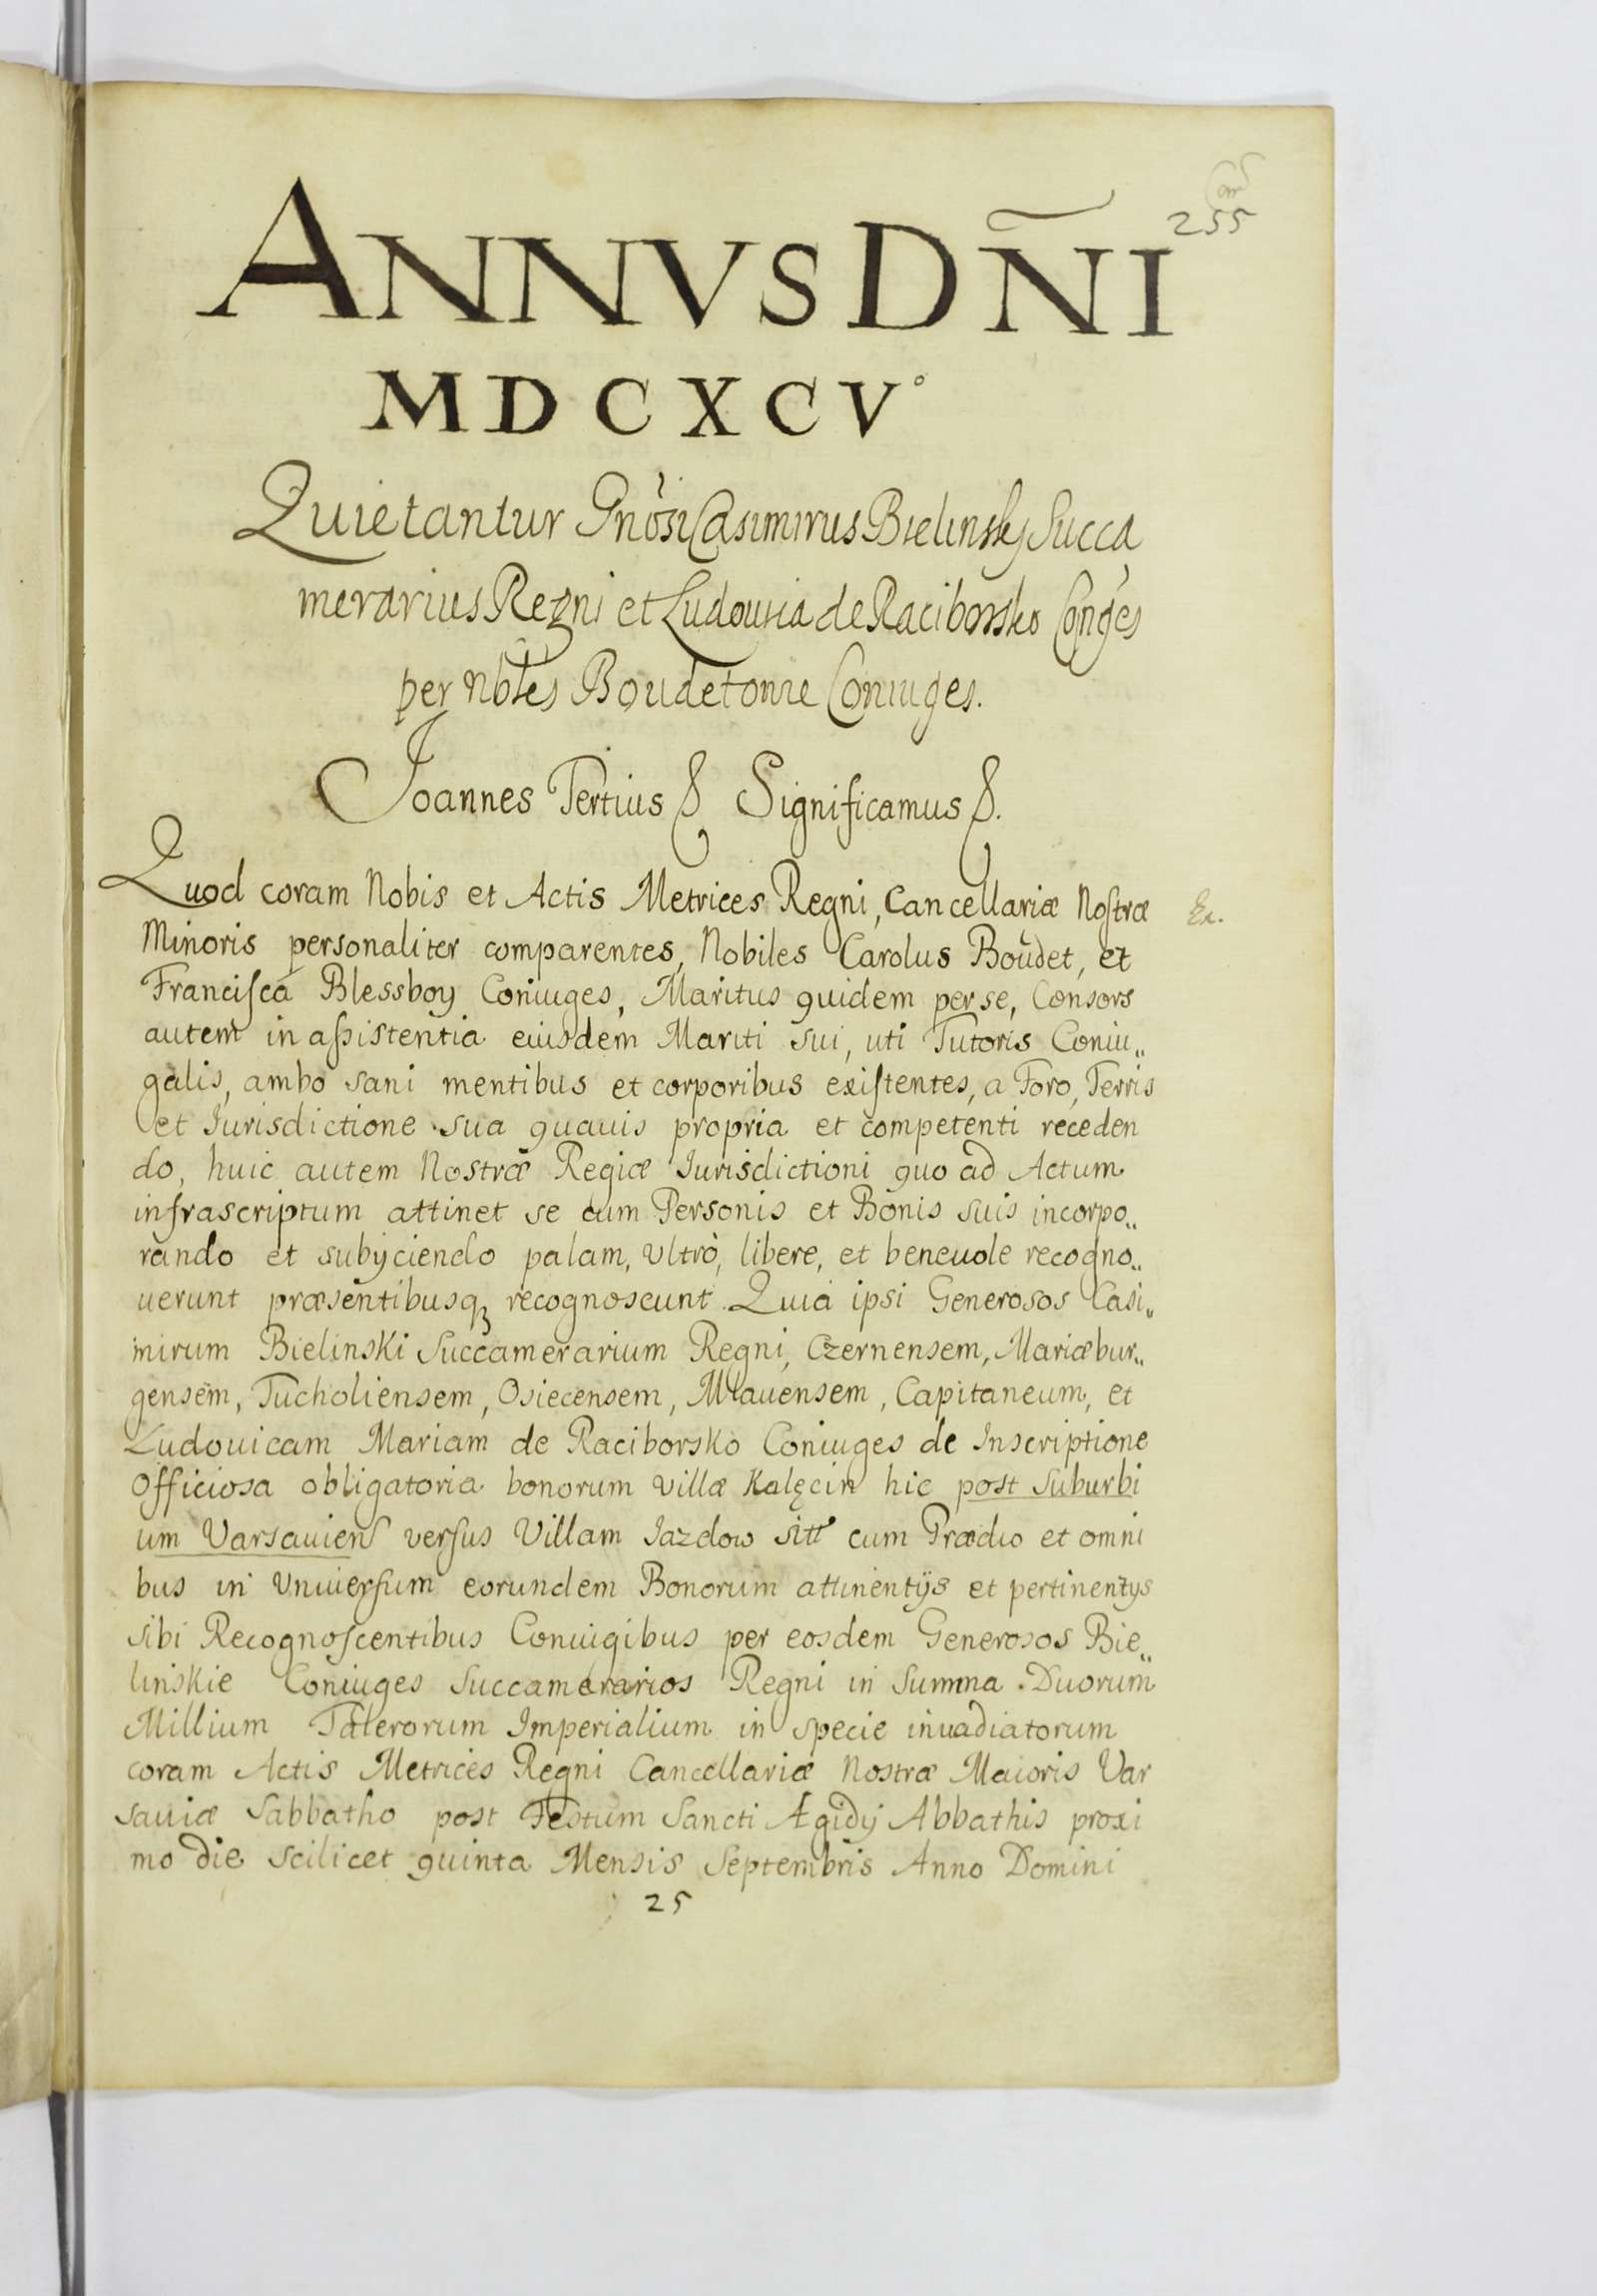 255
ANNVS DÑI
MDCXCV°
Quietantur Gnosi Casimirus Bielinsky Succa
merarius Regni et Ludouica de Raciborsko Conges
per Nbles Boudetowie Coniuges.
Joannes Tertius &. Significamus &.
Quod coram Nobis et Actis Metrices Regni, Cancellariæ Noſtræ
Minoris personaliter comparentes, Nobiles Carolus Boudet, et
Franciſca Blessboy Coniuges, Maritus quidem per se, Consors
autem in aſsistentia eiusdem Mariti sui, uti Tutoris Coniu„
galis, ambo sani mentibus et corporibus exiſtentes, a Foro, Terris
et Jurisdictione sua quauis propria et competenti receden
do, huic autem Nostræ Regiæ Iurisdictioni quo ad Actum
infrascriptum attinet se cum Personis et Bonis suis incorpo„
rando et subijciendo palam, vltrò, libere, et beneuole recogno„
uerunt præsentibusqꝫ recognoscunt. Quia ipsi Generosos Casi„
mirum Bielinski Succamerarium Regni, Czernensem, Mariæbur„
gensem, Tucholiensem, Osiecensem, Mlauensem, Capitaneum, et
Ludouicam Mariam de Raciborsko Coniuges de Inscriptione
Officiosa obligatoria bonorum villæ Kalęcin hic post Suburbi
um Varsauien verſus Villam Jazdow sitt cum Prædio et omni
bus in Vniuerſum eorundem Bonorum attinentijs et pertinentys
sibi Recognoſcentibus Coniugibus per eosdem Generosos Bie„
linskie Coniuges Succamerarios Regni in Summa Duorum
Millium Talerorum Imperialium in specie inuadiatorum
coram Actis Metrices Regni Cancellariæ Nostræ Maioris Var
sauiæ Sabbatho post Festum Sancti Ægidij Abbathis proxi
mo die scilicet quinta Mensis Septembris Anno Domini
25